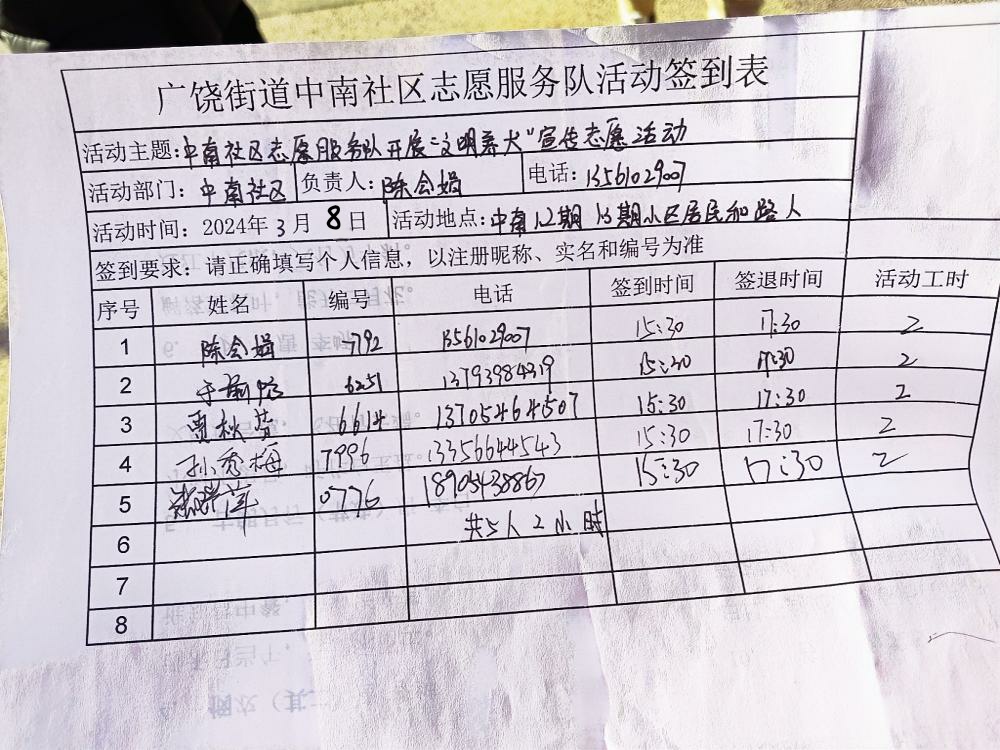 广饶街道中南社区志愿服务队活动签到表
活动主题:中南社区志愿服务队开展“文明养犬”宣传志愿活动
活动部门:中南社区 负责人:陈会娟 电话:13561029007
活动时间:2024年3月8日 活动地点:中南12期 13期小区居民和路人
签到要求:请正确填写个人信息,以注册昵称、实名和编号为准
序号 姓名 编号 电话 签到时间 签退时间 活动工时
1 陈会娟 7792 13561029007 15:30 17:30 2
2 6251 13793984319 15:30 17:30 2
3 贾秋芬 6614 13705464507 15:30 17:30 2
4 孙秀梅 7996 13356644543 15:30 17:30 2
5 0776 18905438867 15:30 17:30 2
6 共5人2小时
7
8